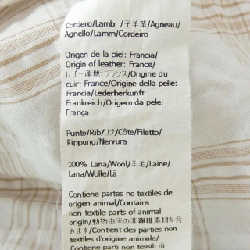 cordero/Lamb/子羊革/Agneau/
Agnello/Lamm/Cordeiro
Origen de la piel: Francia/
Origin of leather: France/
レザー原産: フランス/Origine du
cuir: France/Origine della pelle:
Francia/Lederherkunft:
Frankreich/Origem da pele:
França
Punto/Rib/リブ/Côte/Filetto/
Rippung/Nervura
100% Lana/Wool/羊毛/Laine/
Lana/Wolle/Lã
Contiene partes no textiles de
origen animal/Contains
non textile parts of animal
origin/動物由来の非繊維素材を含
みます/Contient des parties non
textiles d'origine animale/
Contiene parti non tessili di